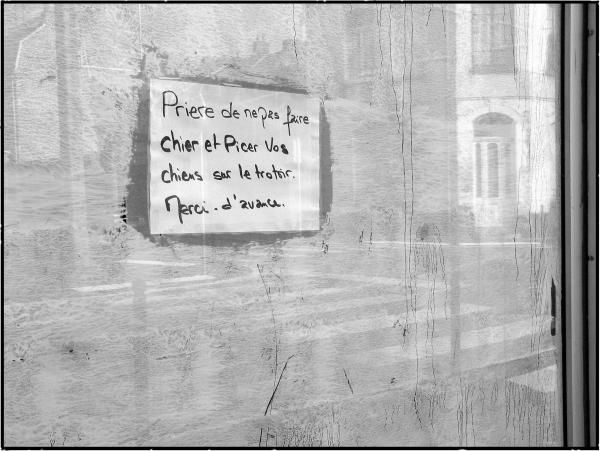 Priere de ne pas faire
chier et Picer Vos
chiens sur le trotoir.
Merci. d'avance.